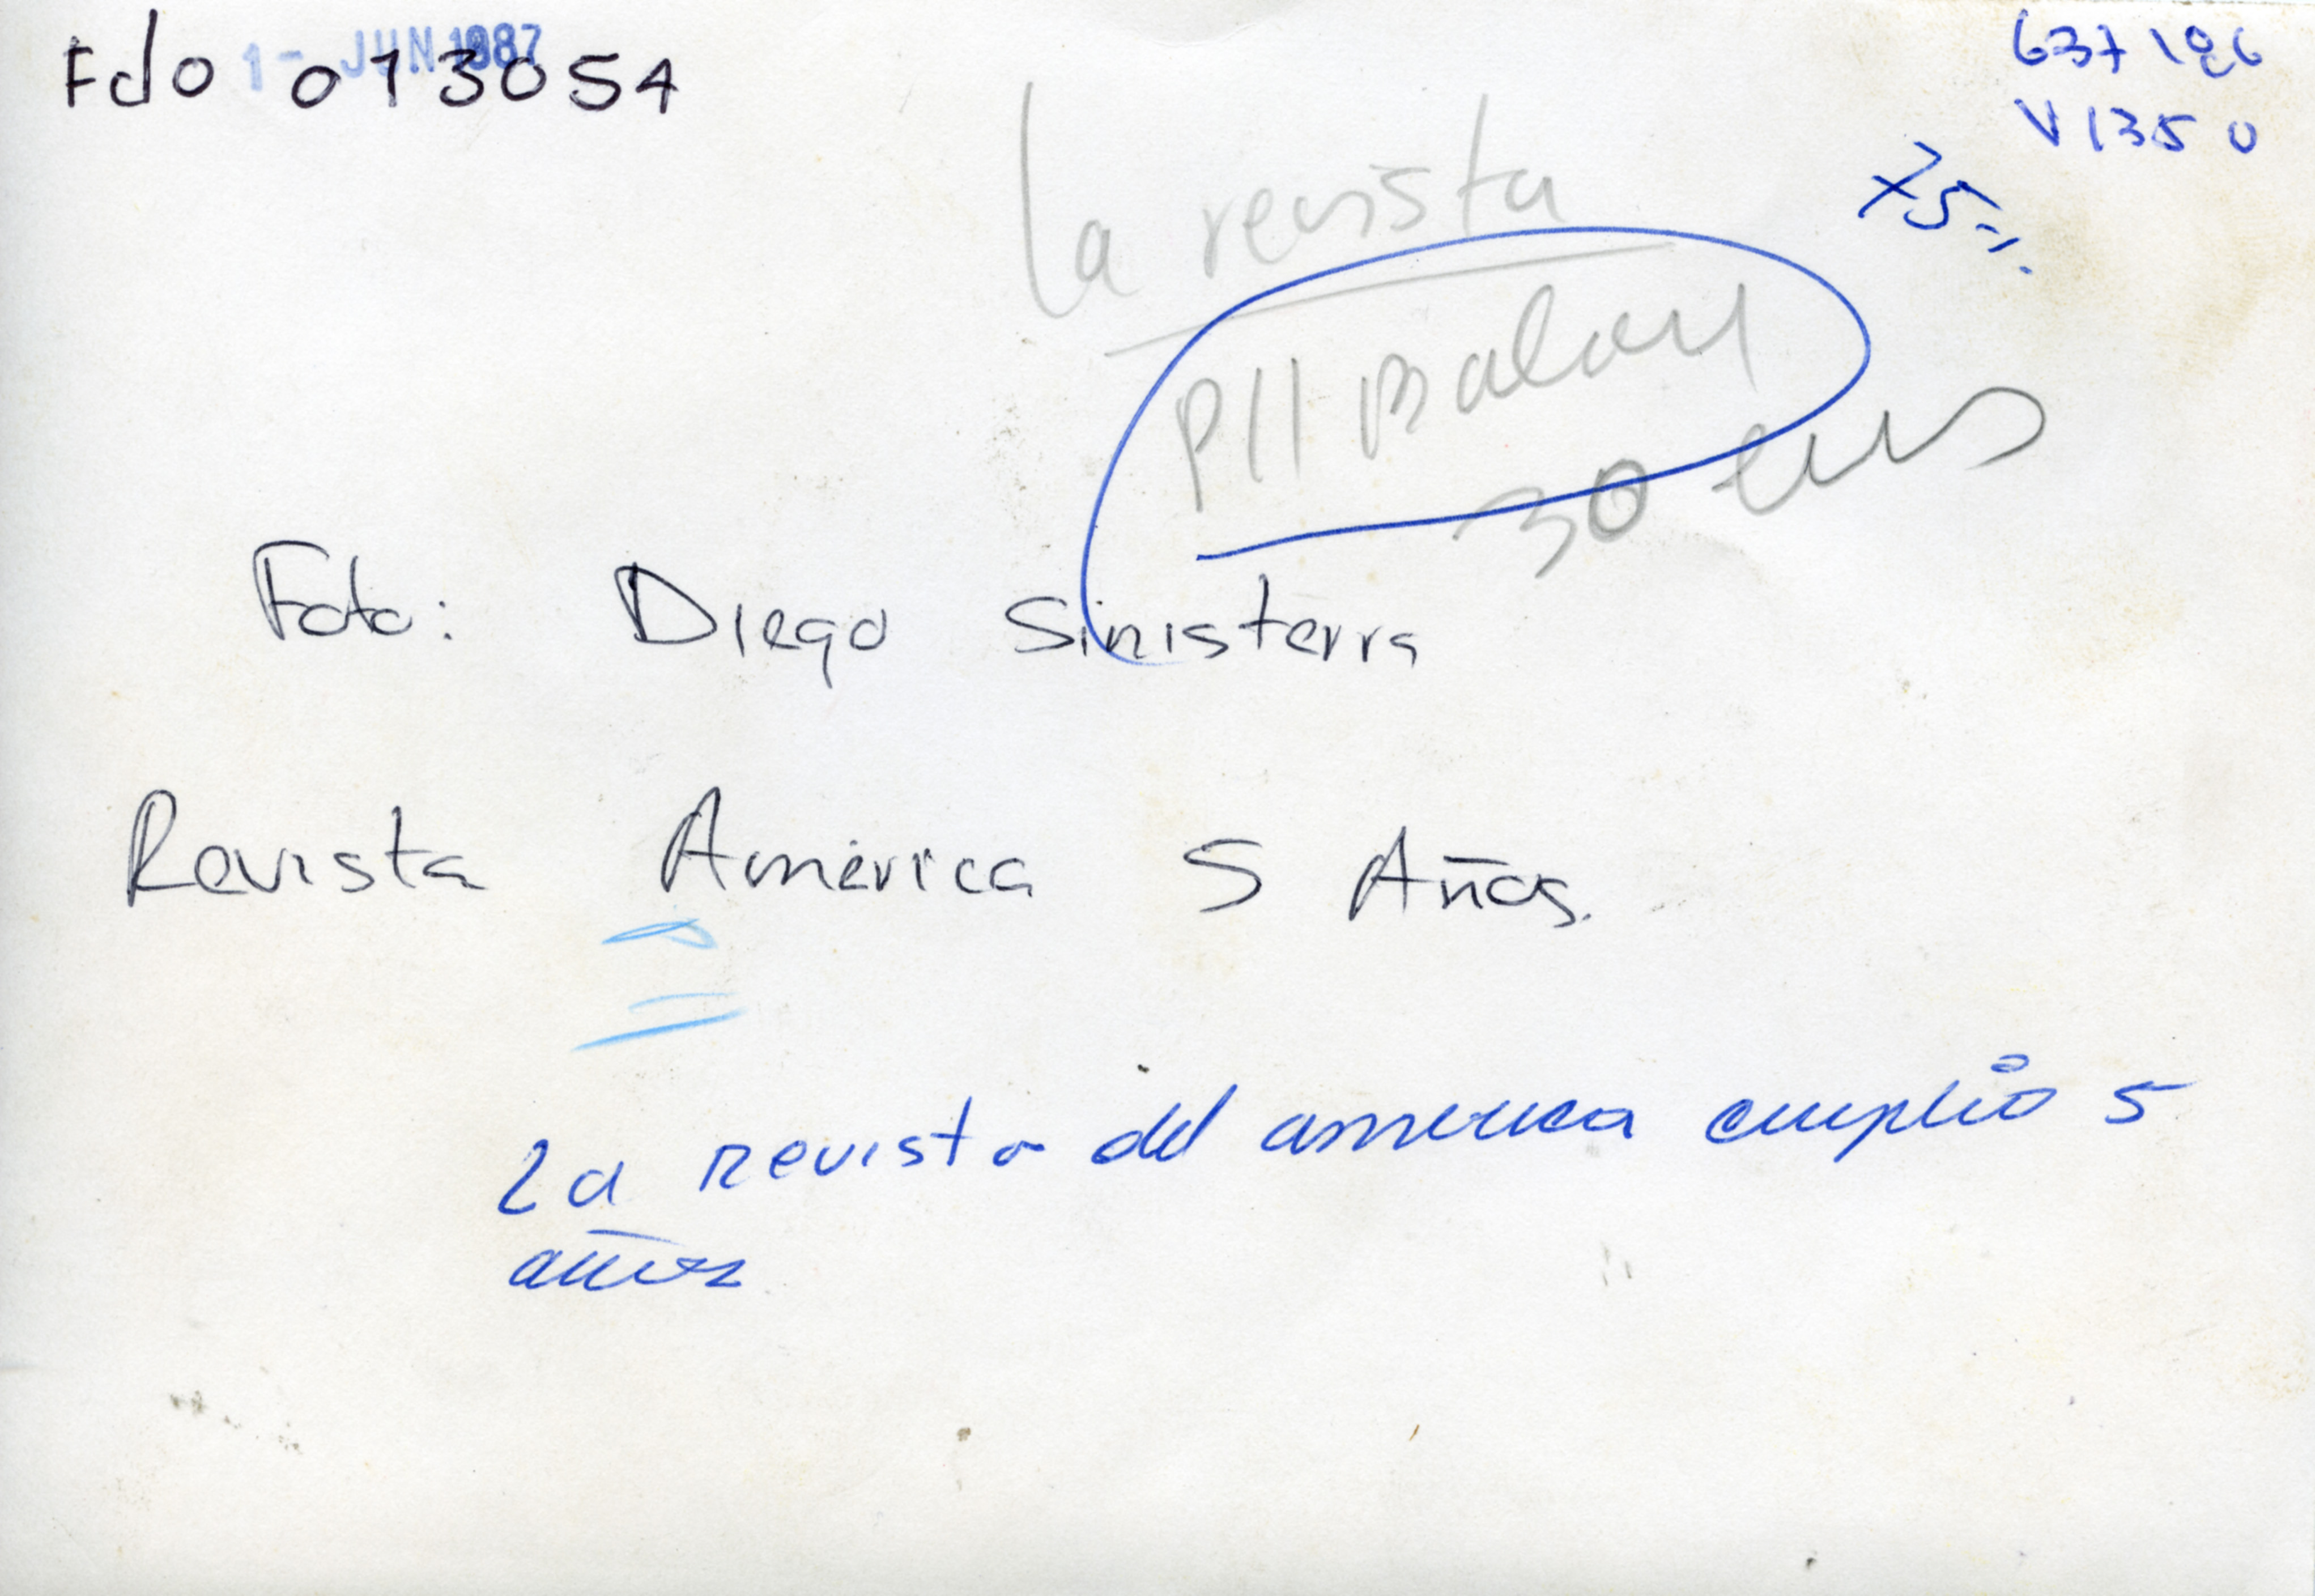 Fdo 013054
1 - JUN 1987
637 186
V 135 0
75%.
la revista
P11 Balon
30 ems
Foto: Diego Sinisterra
Revista América 5 Años.
La revista del america cumplió 5
años